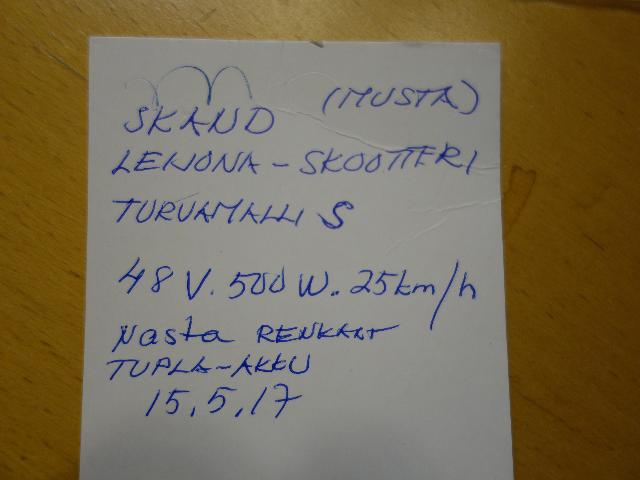 (MUSTA)
SKAND
LEIJONA-SKOOTTERI
TURVAMALLI S
48 V. 500 W. 25km/h
Nasta RENKAAT
TUPLA-AKKU
15.5.17